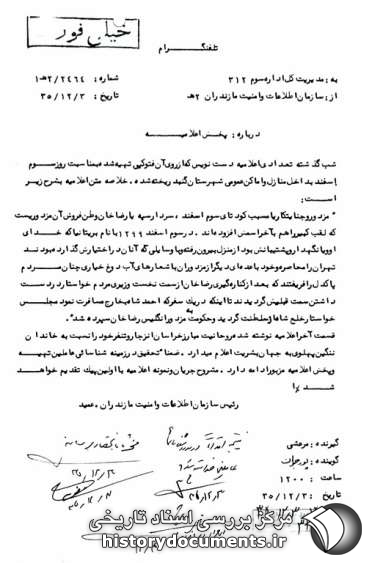 خیلی فوری
تلفنگرام
به: مدیریت کل اداره سوم ۳۱۲
شماره: ۲/۲۴۶۴ﻫ۱
از: سازمان اطلاعات و امنیت مازندران ۲ﻫ
تاریخ: ۳۵/۱۲/۳
درباره: پخش اعلامیه
شب گذشته تعدادی اعلامیه دست نویس که از روی آن فتوکپی تهیه شده بمناسبت روز سوم
اسفند بداخل منازل و اماکن عمومی شهرستان گنبد ریخته شده. خلاصه متن اعلامیه بشرح زیر
است:
" مزدور و جنایتکاریا سبب کودتای سوم اسفند، سردار سپه یا رضاخان وطن فروش آن مزدوریست
که لقب کبیر را هم بآخر اسمش افزوده اند. در سوم اسفند ۱۲۹۹ با نام بریتانیا که خدای
او و یا نگهدار و پشتیبانش بود از منزل بیرون رفته و با وسایلی که آنان در اختیارش گذارده بودند
تهران را محاصره موجود با عده ای دیگر از مزدوران با شعارهای آب دوغ خیاری چنان مردم
پاکدل را فریفتند که بعد از کناره گیری رضاخان از سمت نخست وزیری مردم خواستار در دست
داشتن سمت قبلیش گردیدند تا اینکه در یک سفر که احمد شاه بخارج مسافرت نمود مجلس
خواستار خلع شاه و سلطنت گردید و حکومت مزدور انگلیس به رضاخان سپرده شد"
قسمت آخر اعلامیه نوشته شده روحانیت مبارز خراسان انزجار و تنفر خود را نسبت به خاندان
ننگین پهلوی به جهان بشریت اعلام میدارد. ضمنا" تحقیق در زمینه شناسائی عاملین تهیه
و پخش اعلامیه مزبور ادامه دارد. مشروح جریان و نمونه اعلامیه با اولین پیک تقدیم خواهد
شد
رئیس سازمان اطلاعات و امنیت مازندران. عمید
گیرنده: مرعشی
گوینده: نوجوان
ساعت: ۱۲۰۰
تاریخ: ۳۵/۱۲/۳
مرکز بررسی اسناد تاریخی
historydocuments.ir